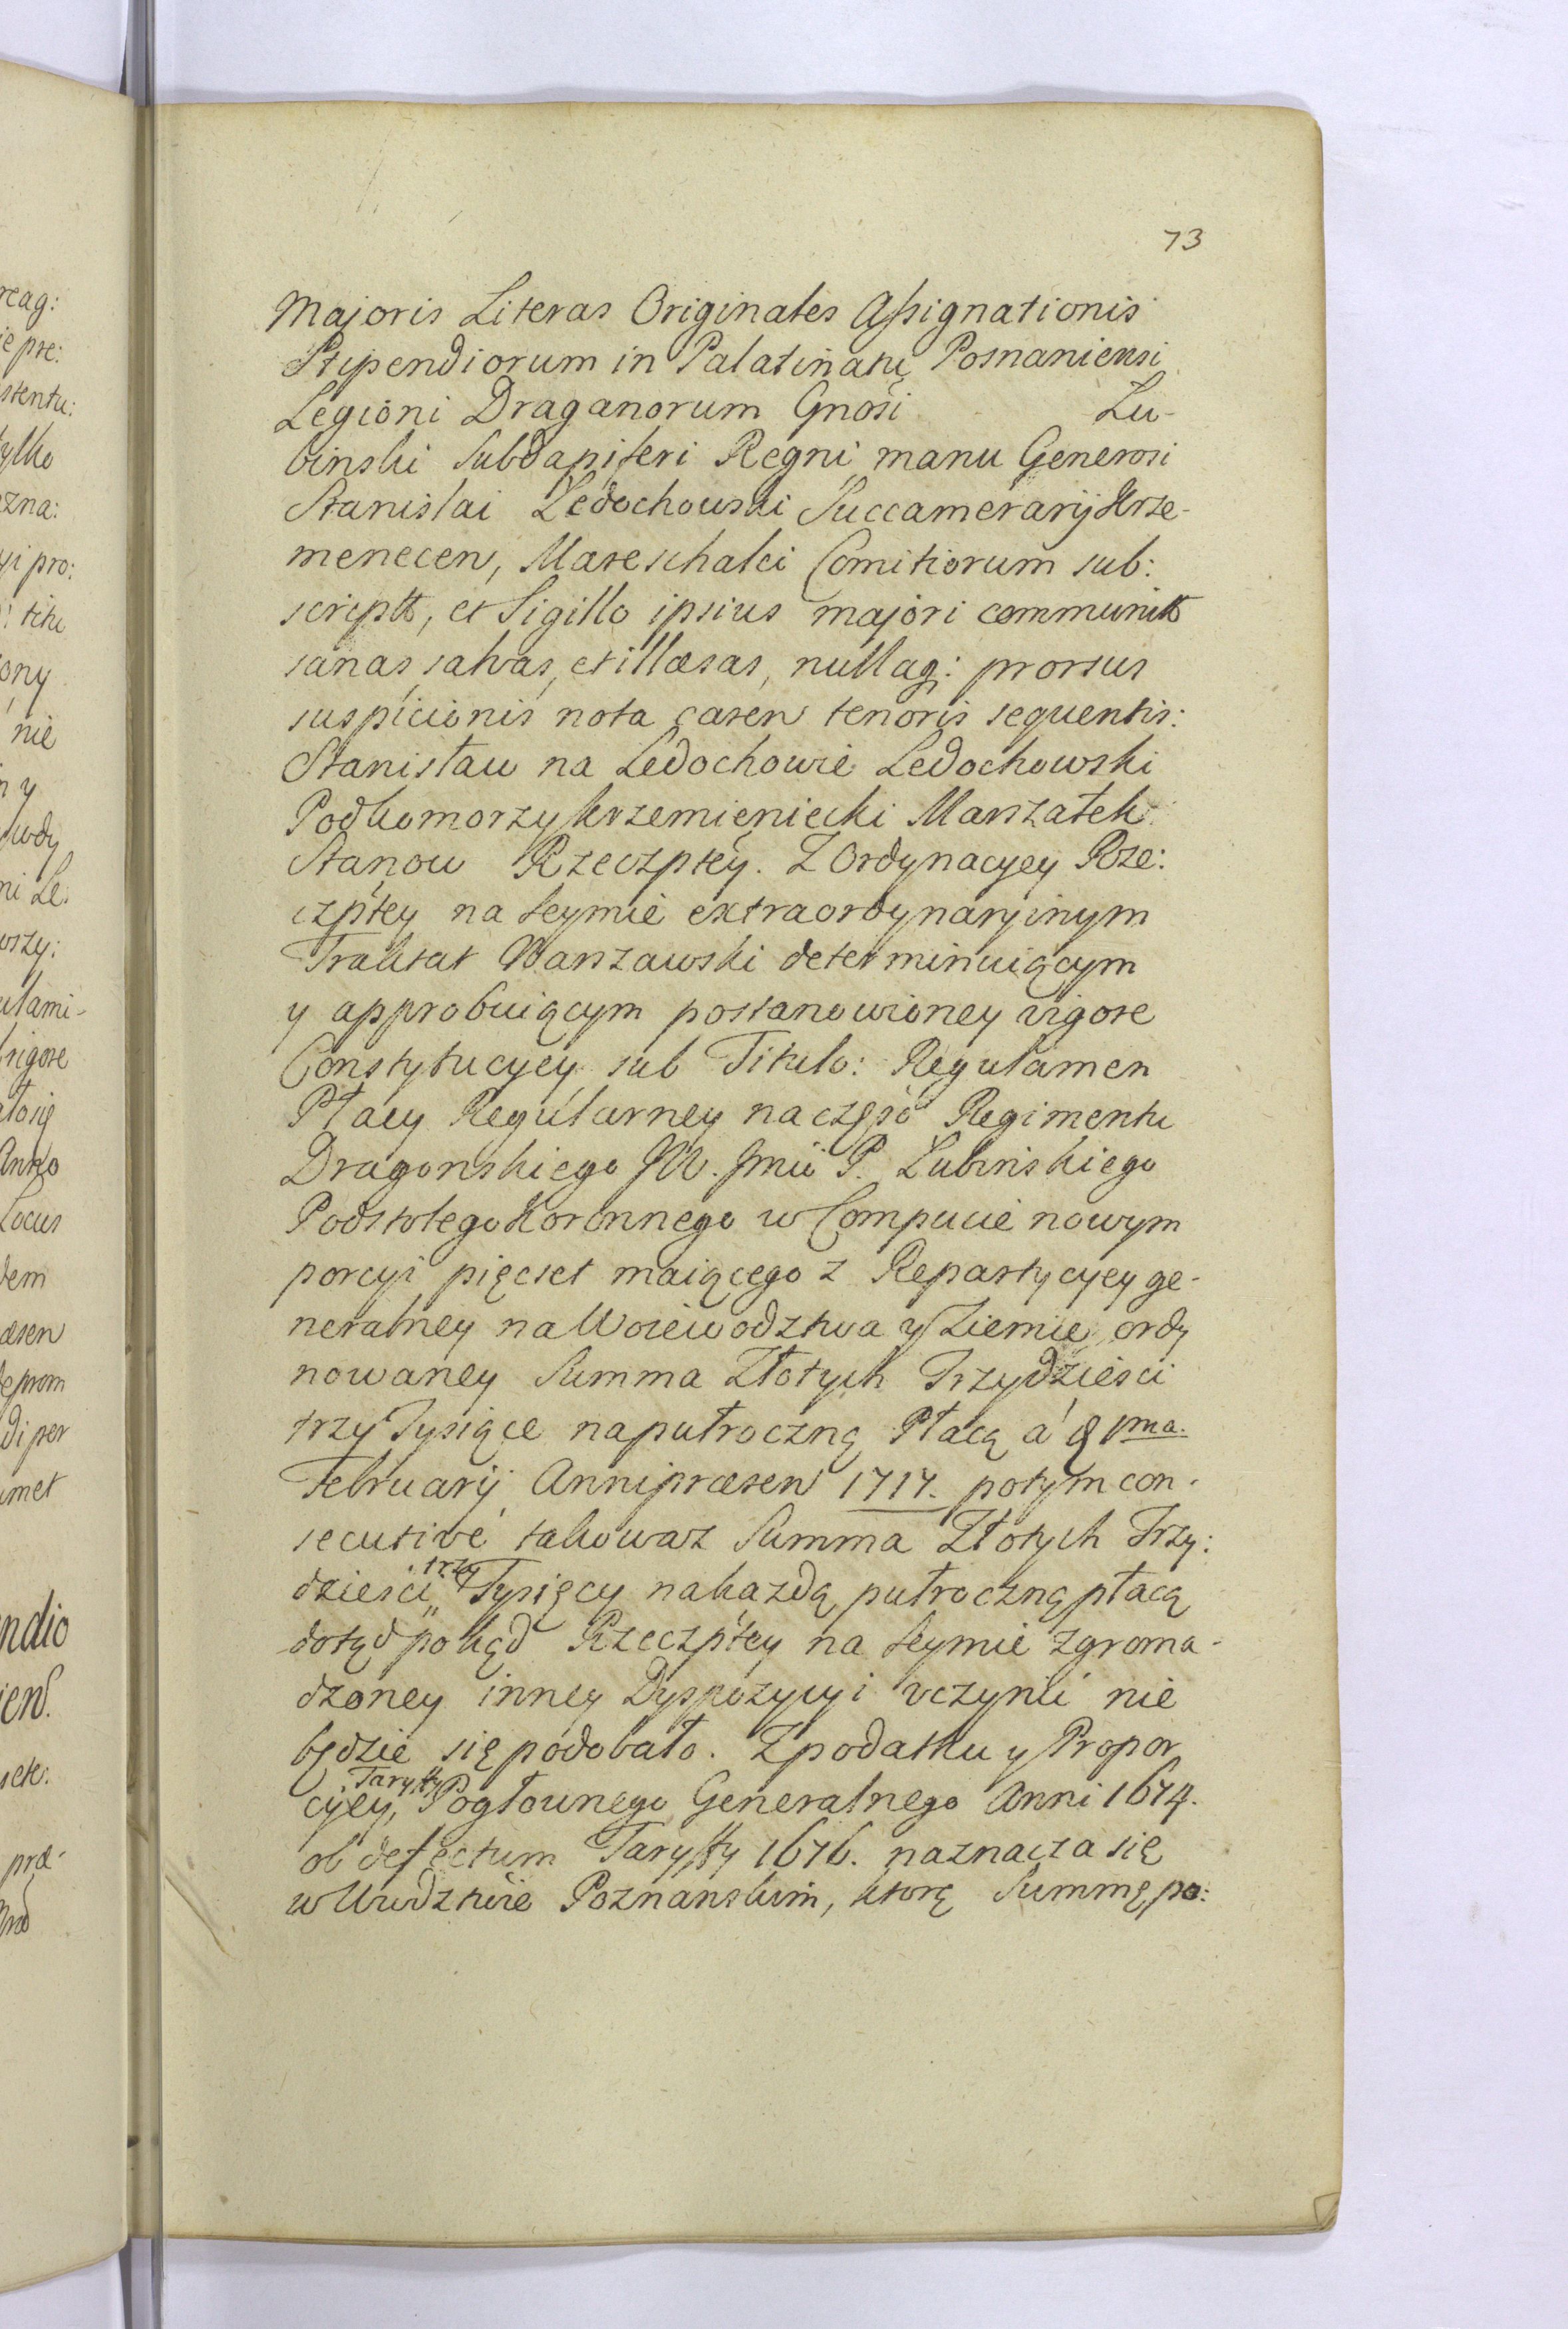 73
Majoris Literas Originales Assignationis
Stipendiorum in Palatinatu Posnaniensi
Legioni Draganorum Gnosi Lu-
binski Subdapiferi Regni manu Generosi
Stanislai Ledochowski Succamerarij Krze-
menecen, Mareschalci Comitiorum sub:
script, et Sigillo ipsius majori communit
sanas, salvas, et illæsas, nullaq: prorsus
suspicionis nota caren tenoris sequentis:
Stanisław na Ledochowie Ledochowski
Podkomorzy krzemieniecki Marszałek
Stanow Rzeczpltey. Z Ordynacyey Rze:
czpltey na Seymie extraordynaryinym
Traktat Warszawski determinuiącym
y approbuiącym postanowioney vigore
Constytucyey sub Titulo: Regulamen
Płacy Regularney na częsć Regimentu
Dragonskiego JW. Jmći P. Lubinskiego
Podstolego Koronnego w Compucie nowym
porcyi pięcset maiącego z Repartycyey ge-
neralney na Woiewodztwa y Ziemie, ordy
nowaney Summa Złotych Trzydziesci
trzy Tysiące na pułroczną Płacą a 1ma.
Februarij Anni præsen 1717. potym con-
secutive takowaz Summa Złotych Trzy:
dziesci trzy Tysięcy na kazdą pułroczną płacą
dotąd pokąd Rzeczpltey na Seymie zgroma-
dzoney inney Dyspozycyi vczynić nie
będzie się podobało. Z podatku y Propor
cyey, Taryffy Pogłownego Generalnego Anni 1674.
ob defectum Taryffy 1676. naznacza się
w Wwdztwie Poznanskim, ktorę Summę po:
reag:
pre:
stentu:
tylko
zna:
pro:
ony
nie
y
wody
ni Le.
wszy:
ulami-
vigore
ałosię
Anno
Locus
dem
æsen
deprom
di per
imet
endio
præ-